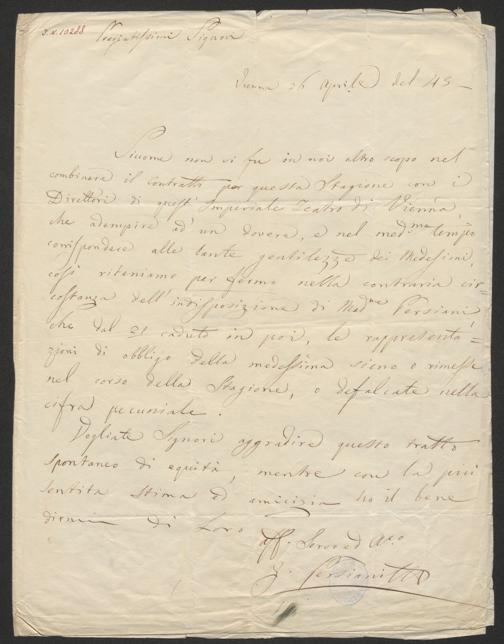 J.N. 10288
Pregiatissimi Signori
Vienna 26 Aprile del 45 –
Siccome non vi fu in noi altro scopo nel
combinare il contratto per questa Stagione con i
Direttori di quest' Imperiale Teatro di Vienna,
che adempire ad un dovere, e nel med.mo tempo
corrispondere alle tante gentilezze dei Medesimi,
così riteniamo per fermo nella contraria cir=
costanza dell' indisposizione di Mad.me Persiani,
che dal 21 caduto in poi, le rappresenta=
zioni di obbligo della medessima sieno o rimesse
nel corso della Stagione, o defalcate nella
cifra pecuniale.
Vogliate Signori aggradire questo tratto
spontaneo di equità, mentre con la più
sentita stima ed amicizia ho il bene
dirmi di Loro
aff. Servo ed A.co
G. Persiani